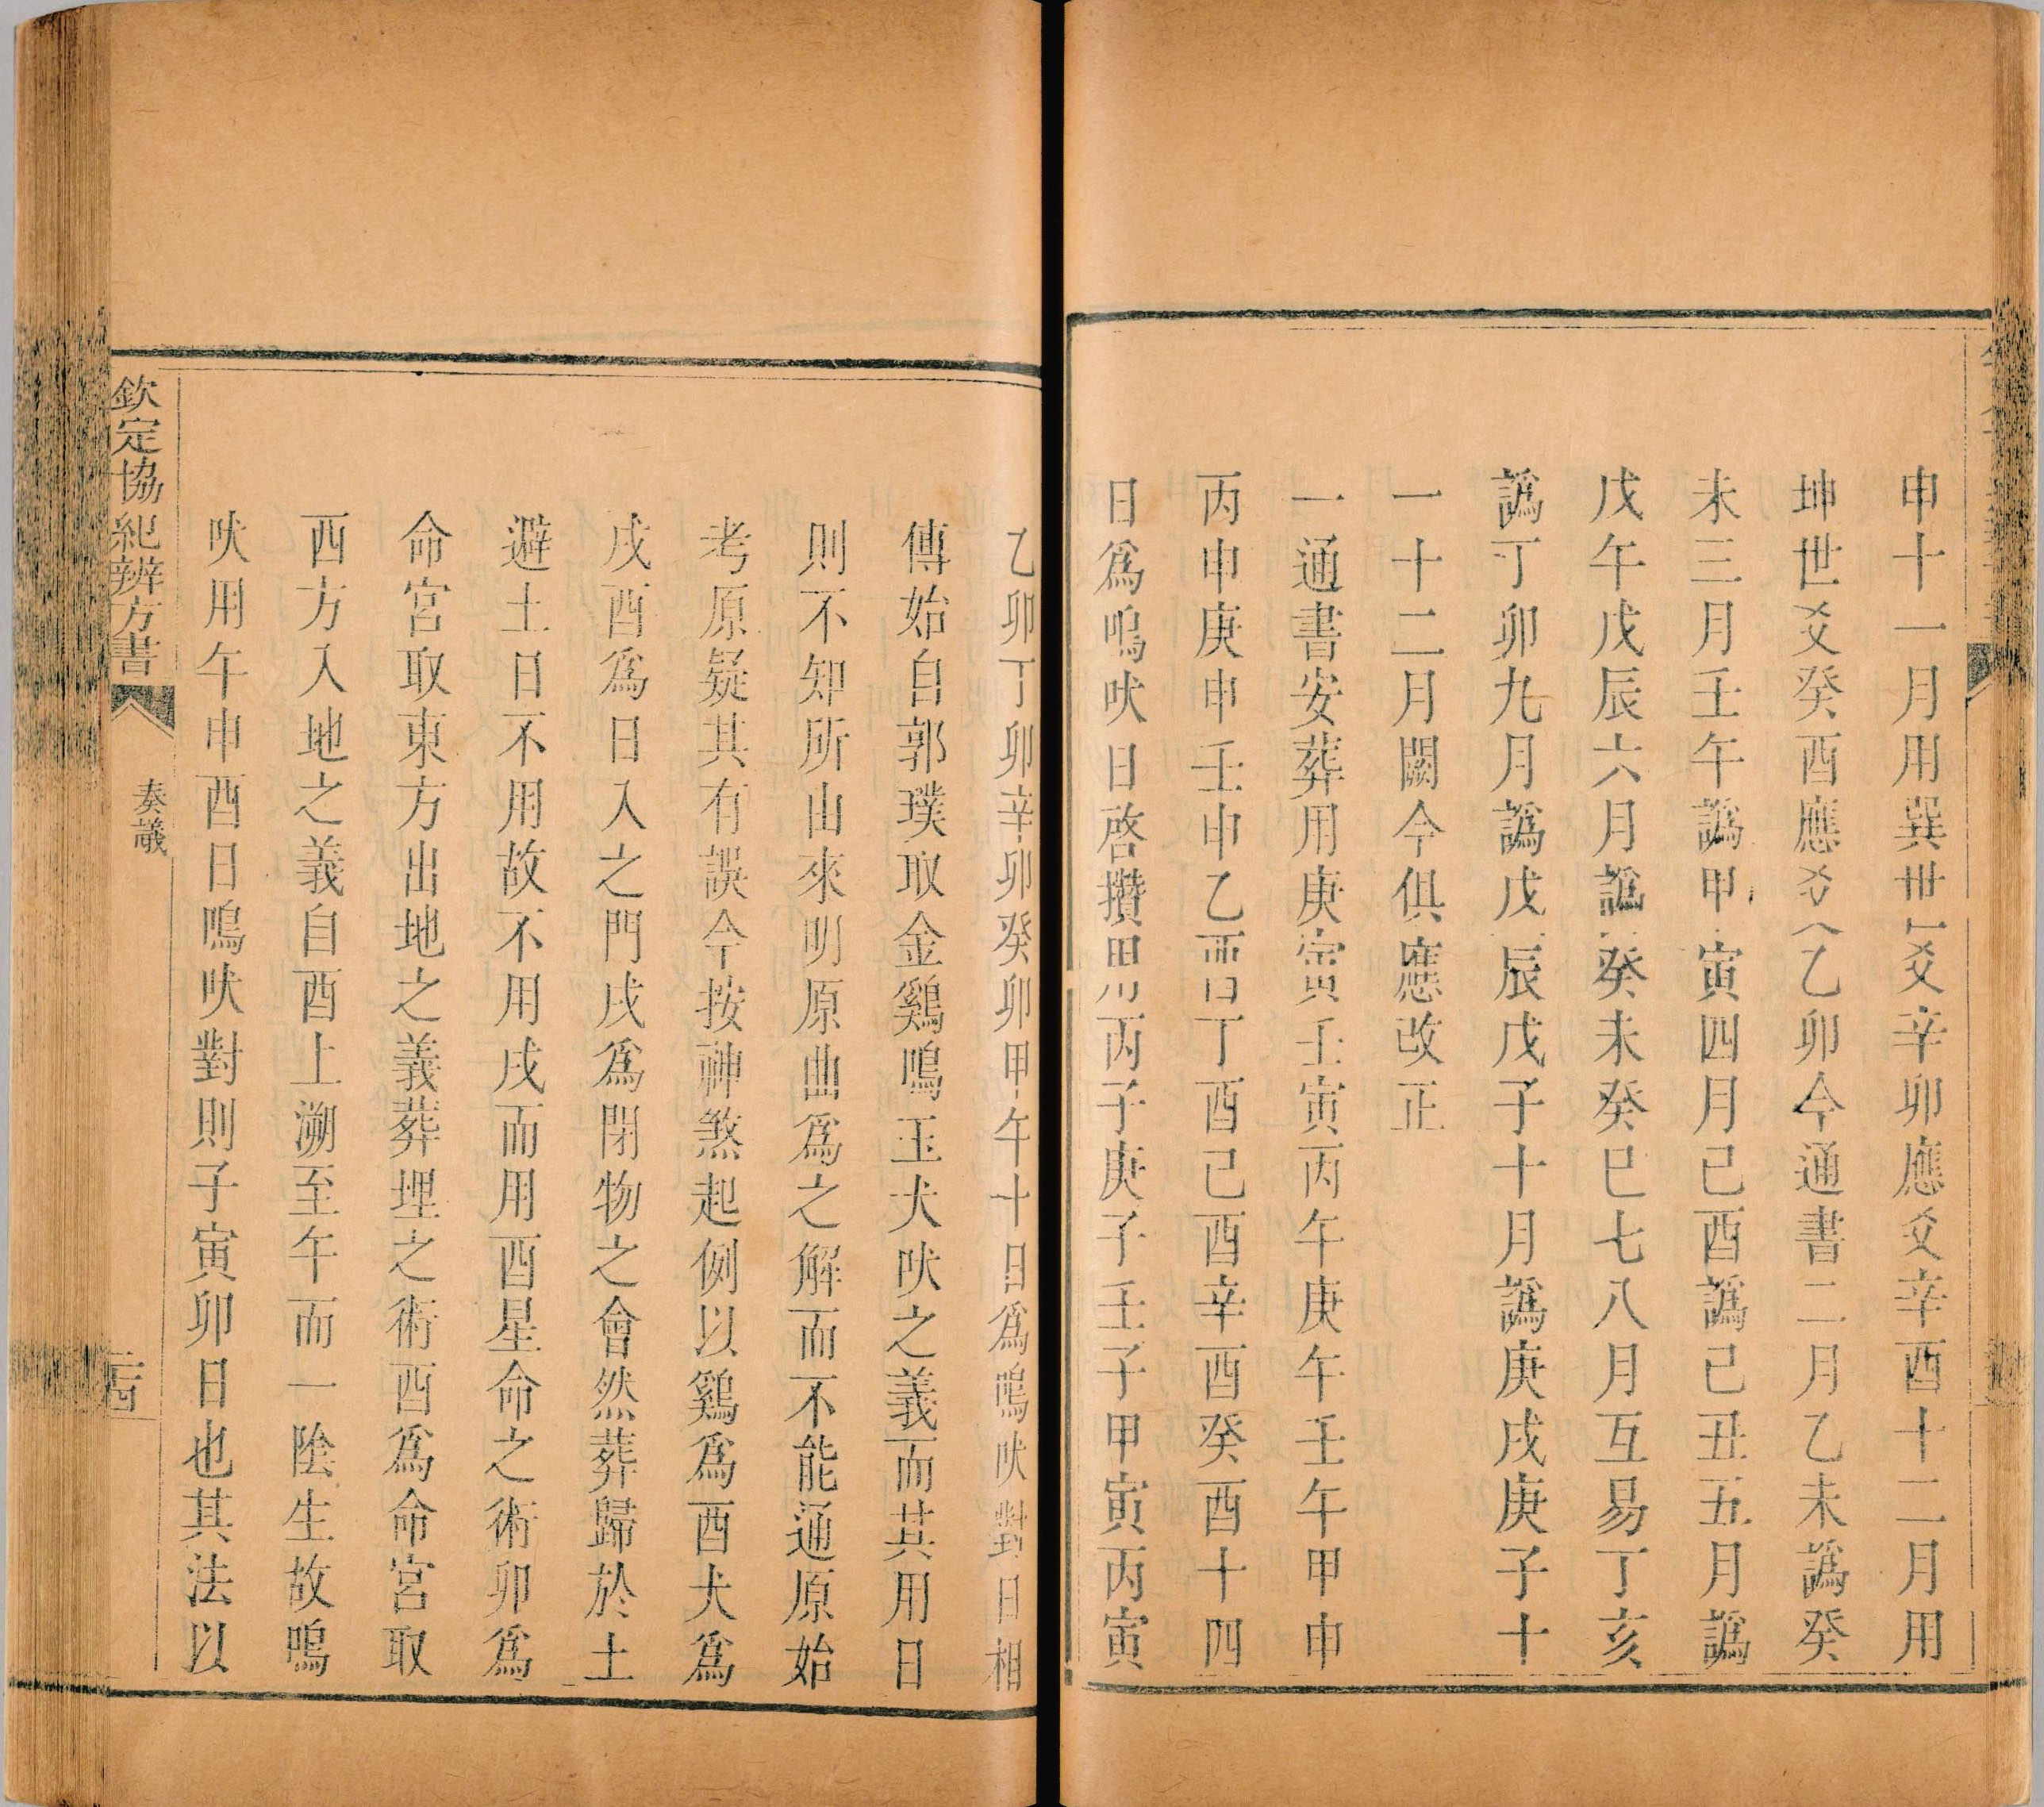 申十一月用巽世爻辛卯應爻辛酉十二月用
坤世爻癸酉應爻乙卯今通書二月乙未譌癸
未三月壬午譌甲寅四月己酉譌己丑五月譌
戊午戊辰六月譌癸未癸巳七八月互易丁亥
譌丁卯九月譌戊辰戊子十月譌庚戌庚子十
一十二月闕今俱應改正
一通書安葬用庚寅壬寅丙午庚午壬午甲申
丙申庚申壬申乙酉丁酉己酉辛酉癸酉十四
日爲鳴吠日啓攢用丙子庚子壬子甲寅丙寅
乙卯丁卯辛卯癸卯甲午十日爲鳴吠對日相
傳始自郭璞取金鷄鳴玉犬吠之義而其用日
則不知所由來明原曲爲之解而不能通原始
考原疑其有誤今按神煞起例以鷄爲酉犬爲
戌酉爲日入之門戌爲閉物之會然葬歸於土
避土日不用故不用戌而用酉星命之術卯爲
命宮取東方出地之義葬埋之術酉爲命宮取
西方入地之義自酉上溯至午而一陰生故鳴
吠用午申酉日鳴吠對則子寅卯日也其法以
欽定協紀辨方書 奏議 二四